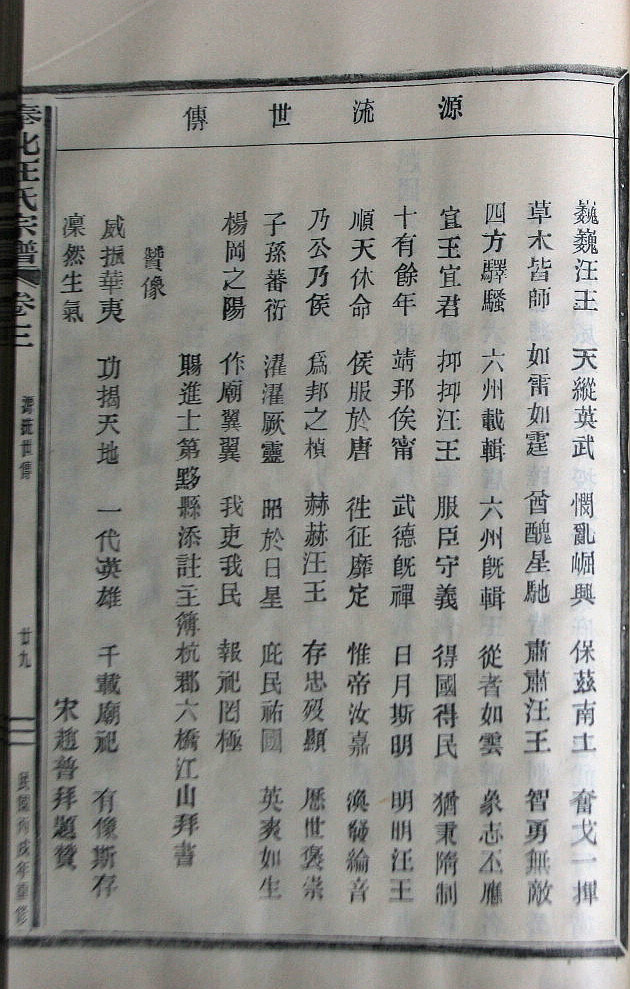 源流世傳
巍巍汪王 天縱英武 憫亂崛興 保茲南土 奮戈一揮
草木皆師 如雷如霆 酋醜星馳 肅肅汪王 智勇無敵
四方驛騷 六州載輯 六州旣輯 從者如雲 象志丕應
宜王宜君 抑抑汪王 服臣守義 得國得民 猶秉隋制
十有餘年 靖邦俟甯 武德旣禪 日月斯明 明明汪王
順天休命 侯服於唐 徃征靡定 惟帝汝嘉 渙發綸音
乃公乃侯 爲邦之楨 赫赫汪王 存忠歿顯 歷世褒崇
子孫蕃衍 濯濯厥靈 昭於日星 庇民祐國 英爽如生
楊岡之陽 作廟翼翼 我吏我民 報祀罔極
賜進士第黟縣添註主簿杭郡六橋江山拜書
贊像
威振華夷 功揭天地 一代英雄 千載廟祀 有像斯存
凜然生氣
宋趙普拜題贊
北汪氏宗譜 卷三
源流世傳
廿九
民國丙戌年重修